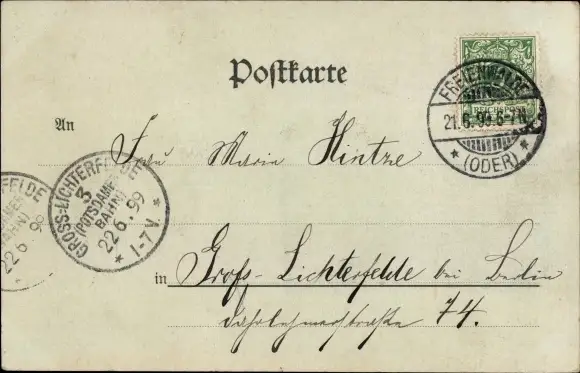 Postkarte
REICHSPOST
FREIENWALDE
21.6.99.6-7N.
* (ODER) *
An Frau Maria Hintze
GROSS-LICHTERFELDE
3
(POTSDAMER
BAHN)
22 6. 99
* 1-7V. *
FELDE
22 6. 99
in Groß-Lichterfelde bei Berlin
74.